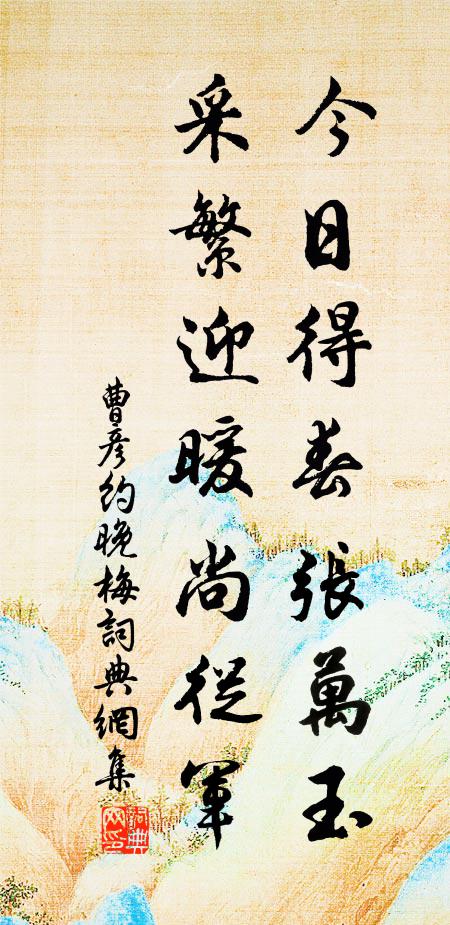 今日得春張萬玉
采繁迎暖尚從軍
曹彦約晚梅詞典網集
詞典網印